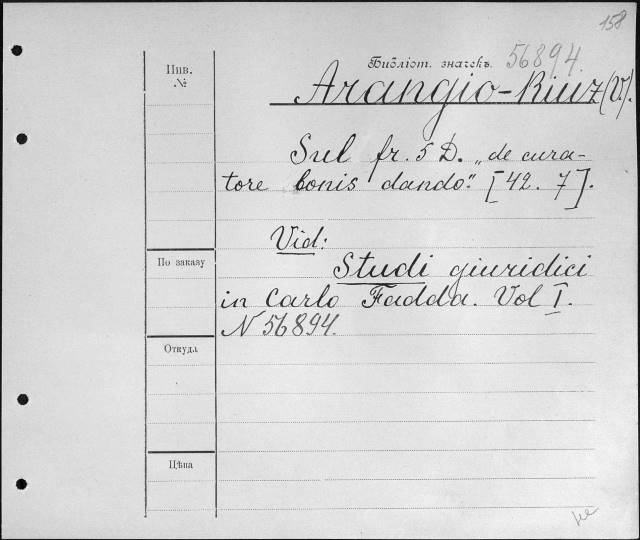 158
Библіот. значекъ. 56894.
Инв.
№
Arangio-Ruiz (V).
Sul fr. 5 D. „de cura-
tore bonis dando." [42. 7].
Vid:
По заказу
Studi giuridici
in Carlo Fadda. Vol I.
N 56894.
Откуда
Цѣна